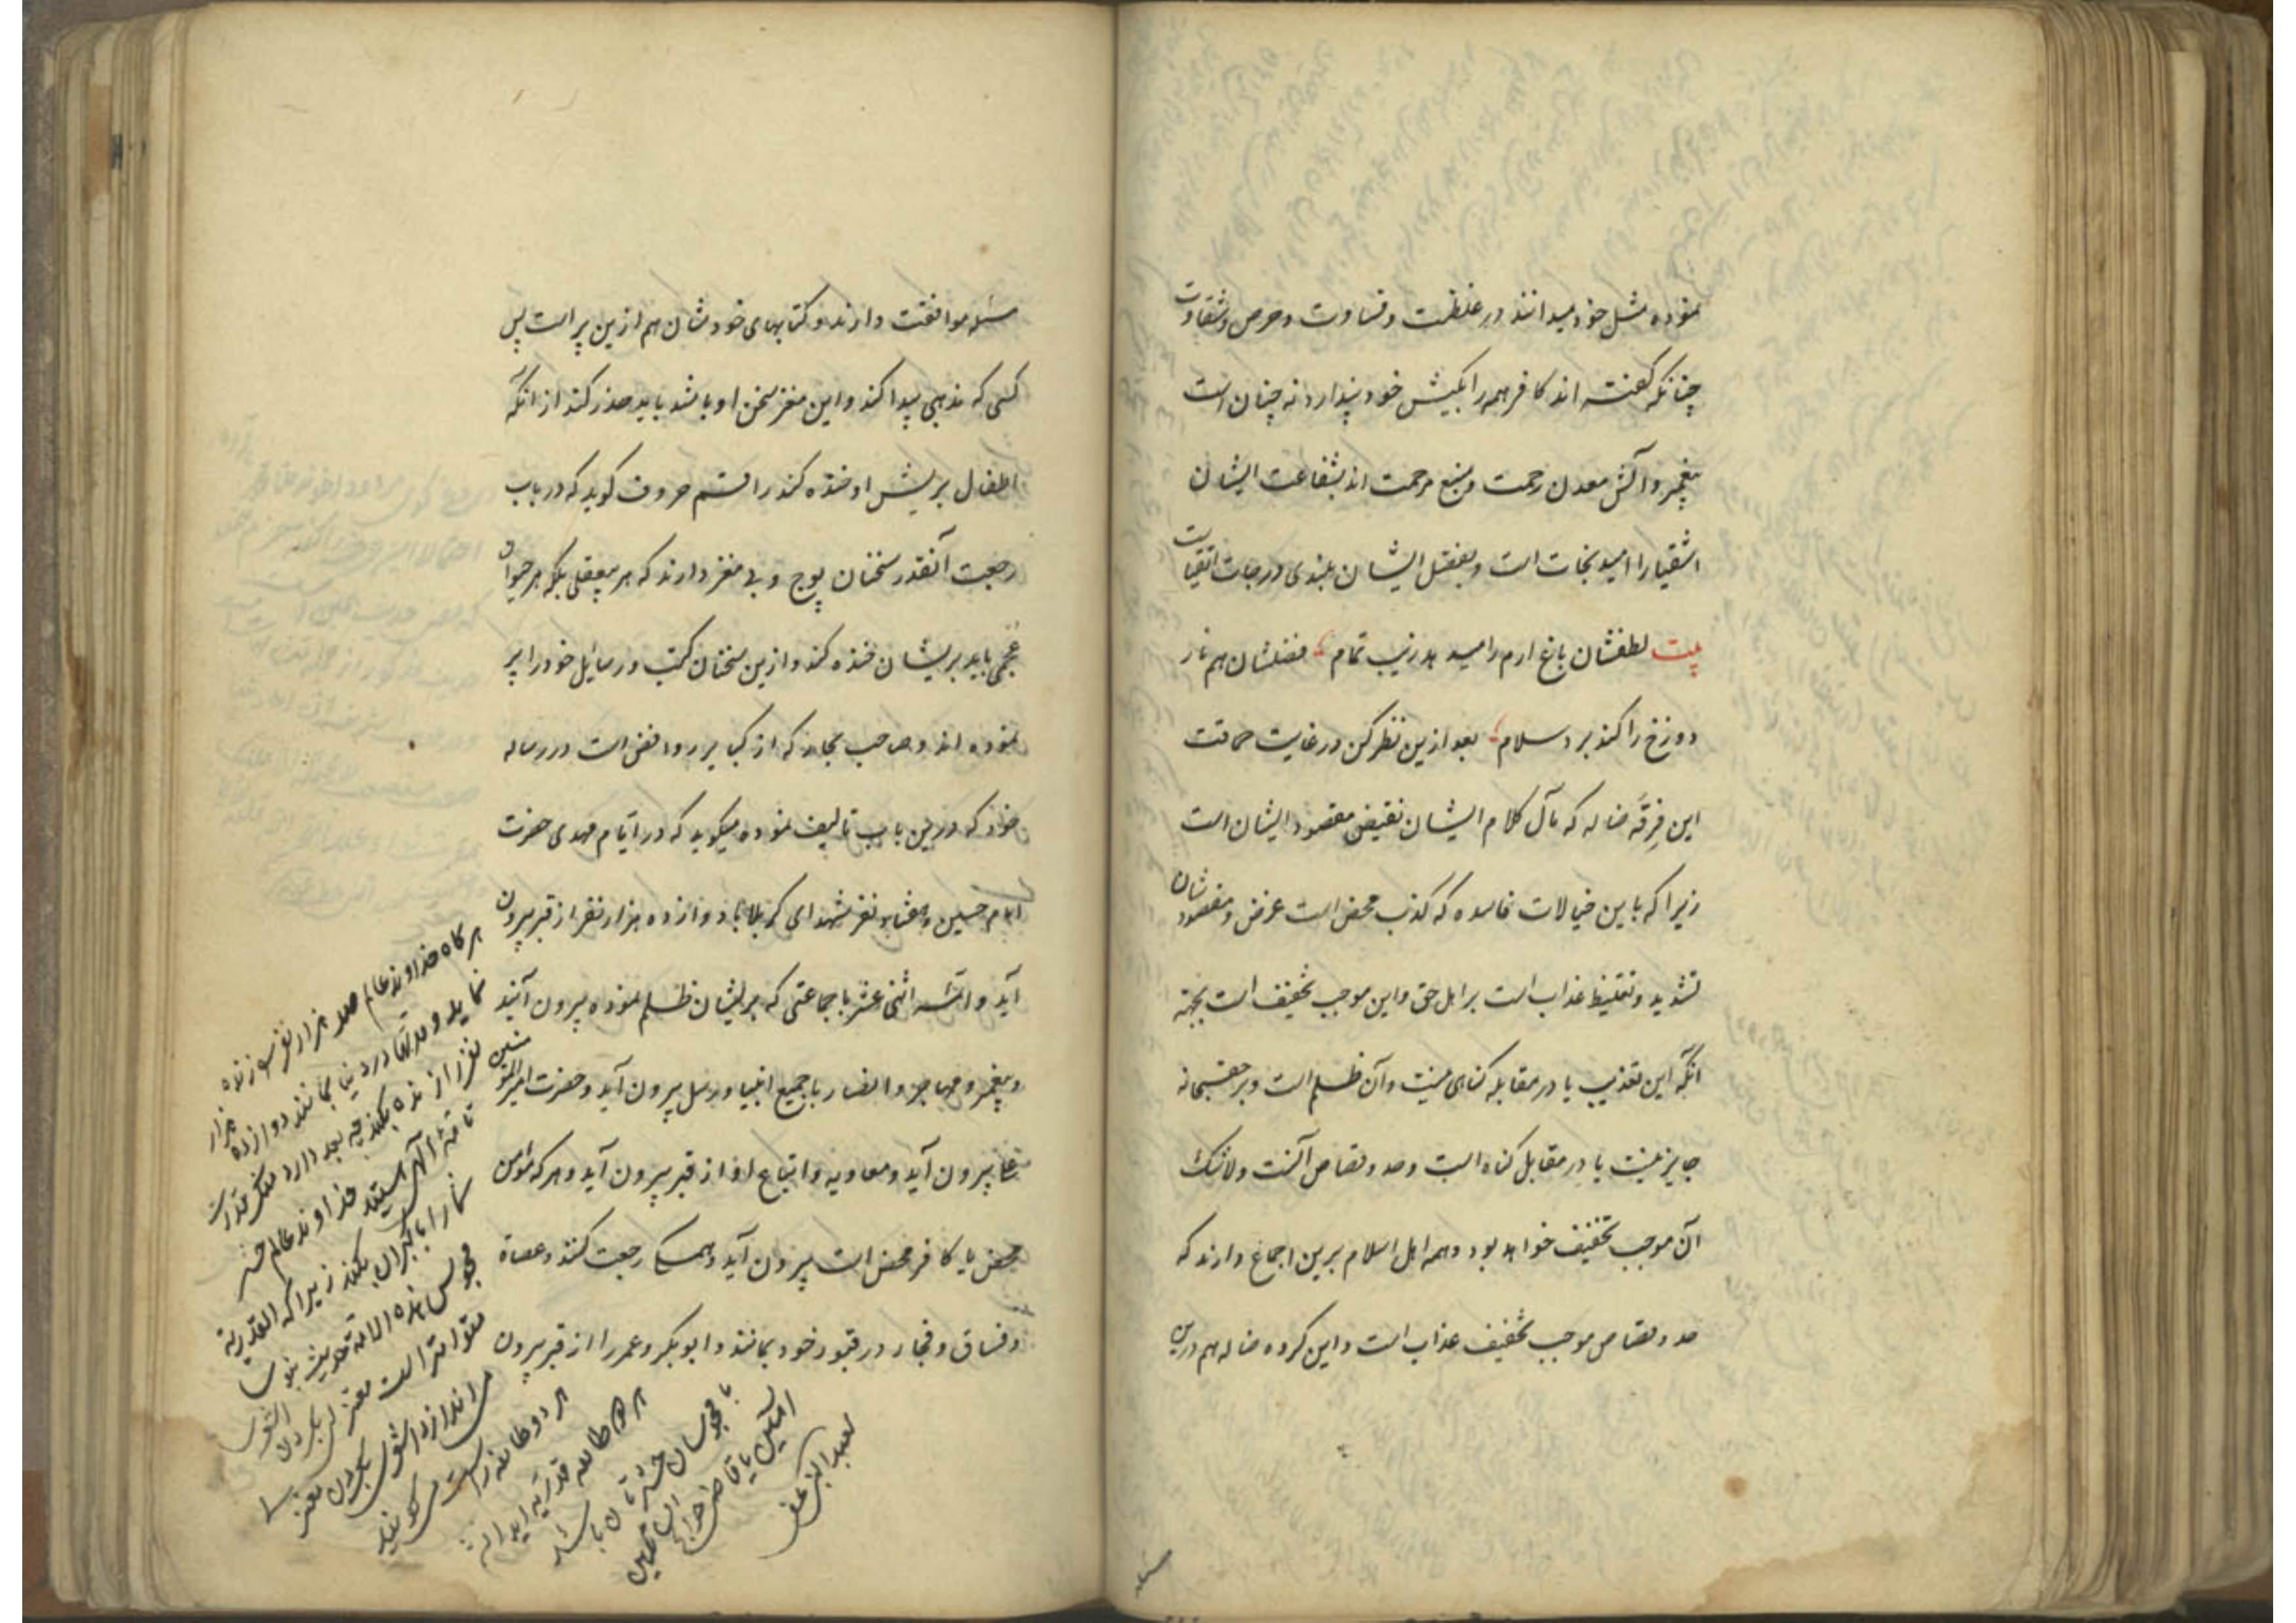 نموده مثل خود میدانند در غلظت و قساوت و حرص و شقاوت
چنانکه گفته اند کافر همه را بکیش خود پندارد نه چنان است
پیغمبر و آلش معدن رحمت و منبع مرحمت اند بشفاعت ایشان
اشقیا را امید نجات است و بفضل ایشان بلندی درجات اتقیاست
بیت لطفشان باغ ارم را میدهد زیب تمام فضلشان هم نار
دوزخ را کند برد سلام بعد ازین نظر کن در غایت حماقت
این فرقه ضاله که مآل کلام ایشان نقیض مقصود ایشان است
زیرا که باین خیالات فاسده که کذب محض است غرض و مقصودشان
تشدید و تغلیظ عذاب است بر اهل حق و این موجب تخفیف است بجهة
آنکه این تعذیب یا در مقابله گناهی نیست و آن ظلم است و بر حقسبحانه
جایز نیست یا در مقابل گناه است و حد و قصاص آنست ولاشک
آن موجب تخفیف خواهد بود و همه اهل اسلام برین اجماع دارند که
حد و قصاص موجب تخفیف عذاب است و این گروه ضاله هم درین
مسئله
مسئله موافقت دارند و کتابهای خودشان هم ازین پر است پس
کسی که مذهبی پیدا کند و این مغز سخن او باشد باید حذر کند از آنکه
اطفال بریش او خنده کند راقم حروف گوید که در باب
رجعت آنقدر سخنان پوچ و بی مغز دارند که هر بیعقلی بلکه هر حیوان
عجمی باید بریشان خنده کند و ازین سخنان کتب و رسایل خود را پر
نموده اند و صاحب بحار که از کبایر روافض است در رساله
خود که درین باب تالیف نموده میگوید که در ایام مهدی حضرت
امام حسین و هفتاد نفر شهدای کربلا با دوازده هزار نفر از قبر بیرون
آید و ائمه اثنی عشر با جماعتی که بریشان ظلم نموده بیرون آیند
و پیغمبر و مهاجر و انصار با جمیع انبیا و رسل بیرون آید و حضرت امیرالمؤمنین
بیرون آید و معاویه و اتباع او از قبر بیرون آید و هر که مؤمن
محض یا کافر محض است بیرون آید و همه رجعت کنند و عصاة
و فساق و فجار در قبور خود بمانند و ابوبکر و عمر را از قبر بیرون
هر گاه خداوند عالم صد هزار نفر زنده
نماید و مدتها در دنیا بمانند دوازده هزار
نفر را زنده بکند چه بعد دارد منکر قدرت
تامهٔ الهی هستید خداوند عالم حشر
شما را با گبران بکند زیرا که القدریة
مجوس هذه الامة حدیث نبوی
متواتر است
می اندازد اشعری بگردن معتزلی
هر دو طائفه راست می گویند
هر دو طائفه قدریه اید
با مجوسان حشرتان باشد
آمین یا قاضی